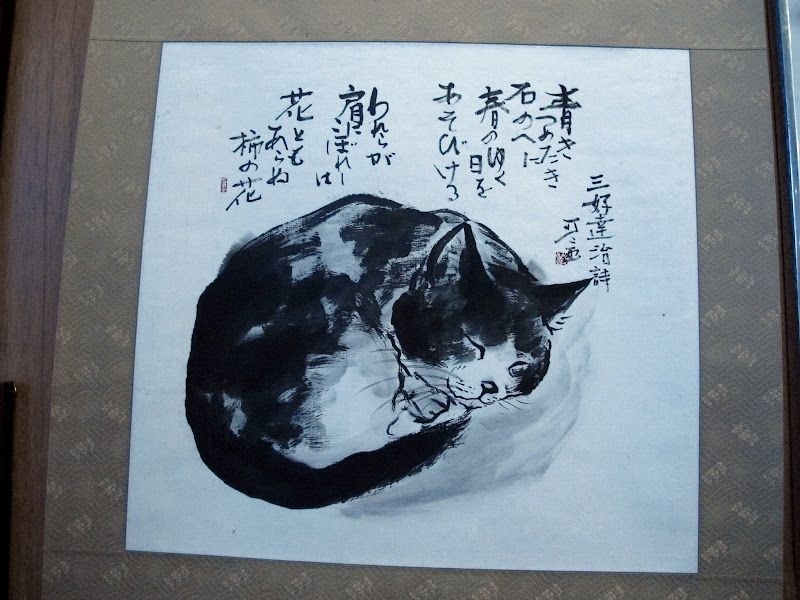 青き
つめたき
石のへに
春のゆく
日を
あそびける
われらが
肩にこぼれしは
花とも
あらぬ
柿の花
三好達治詩